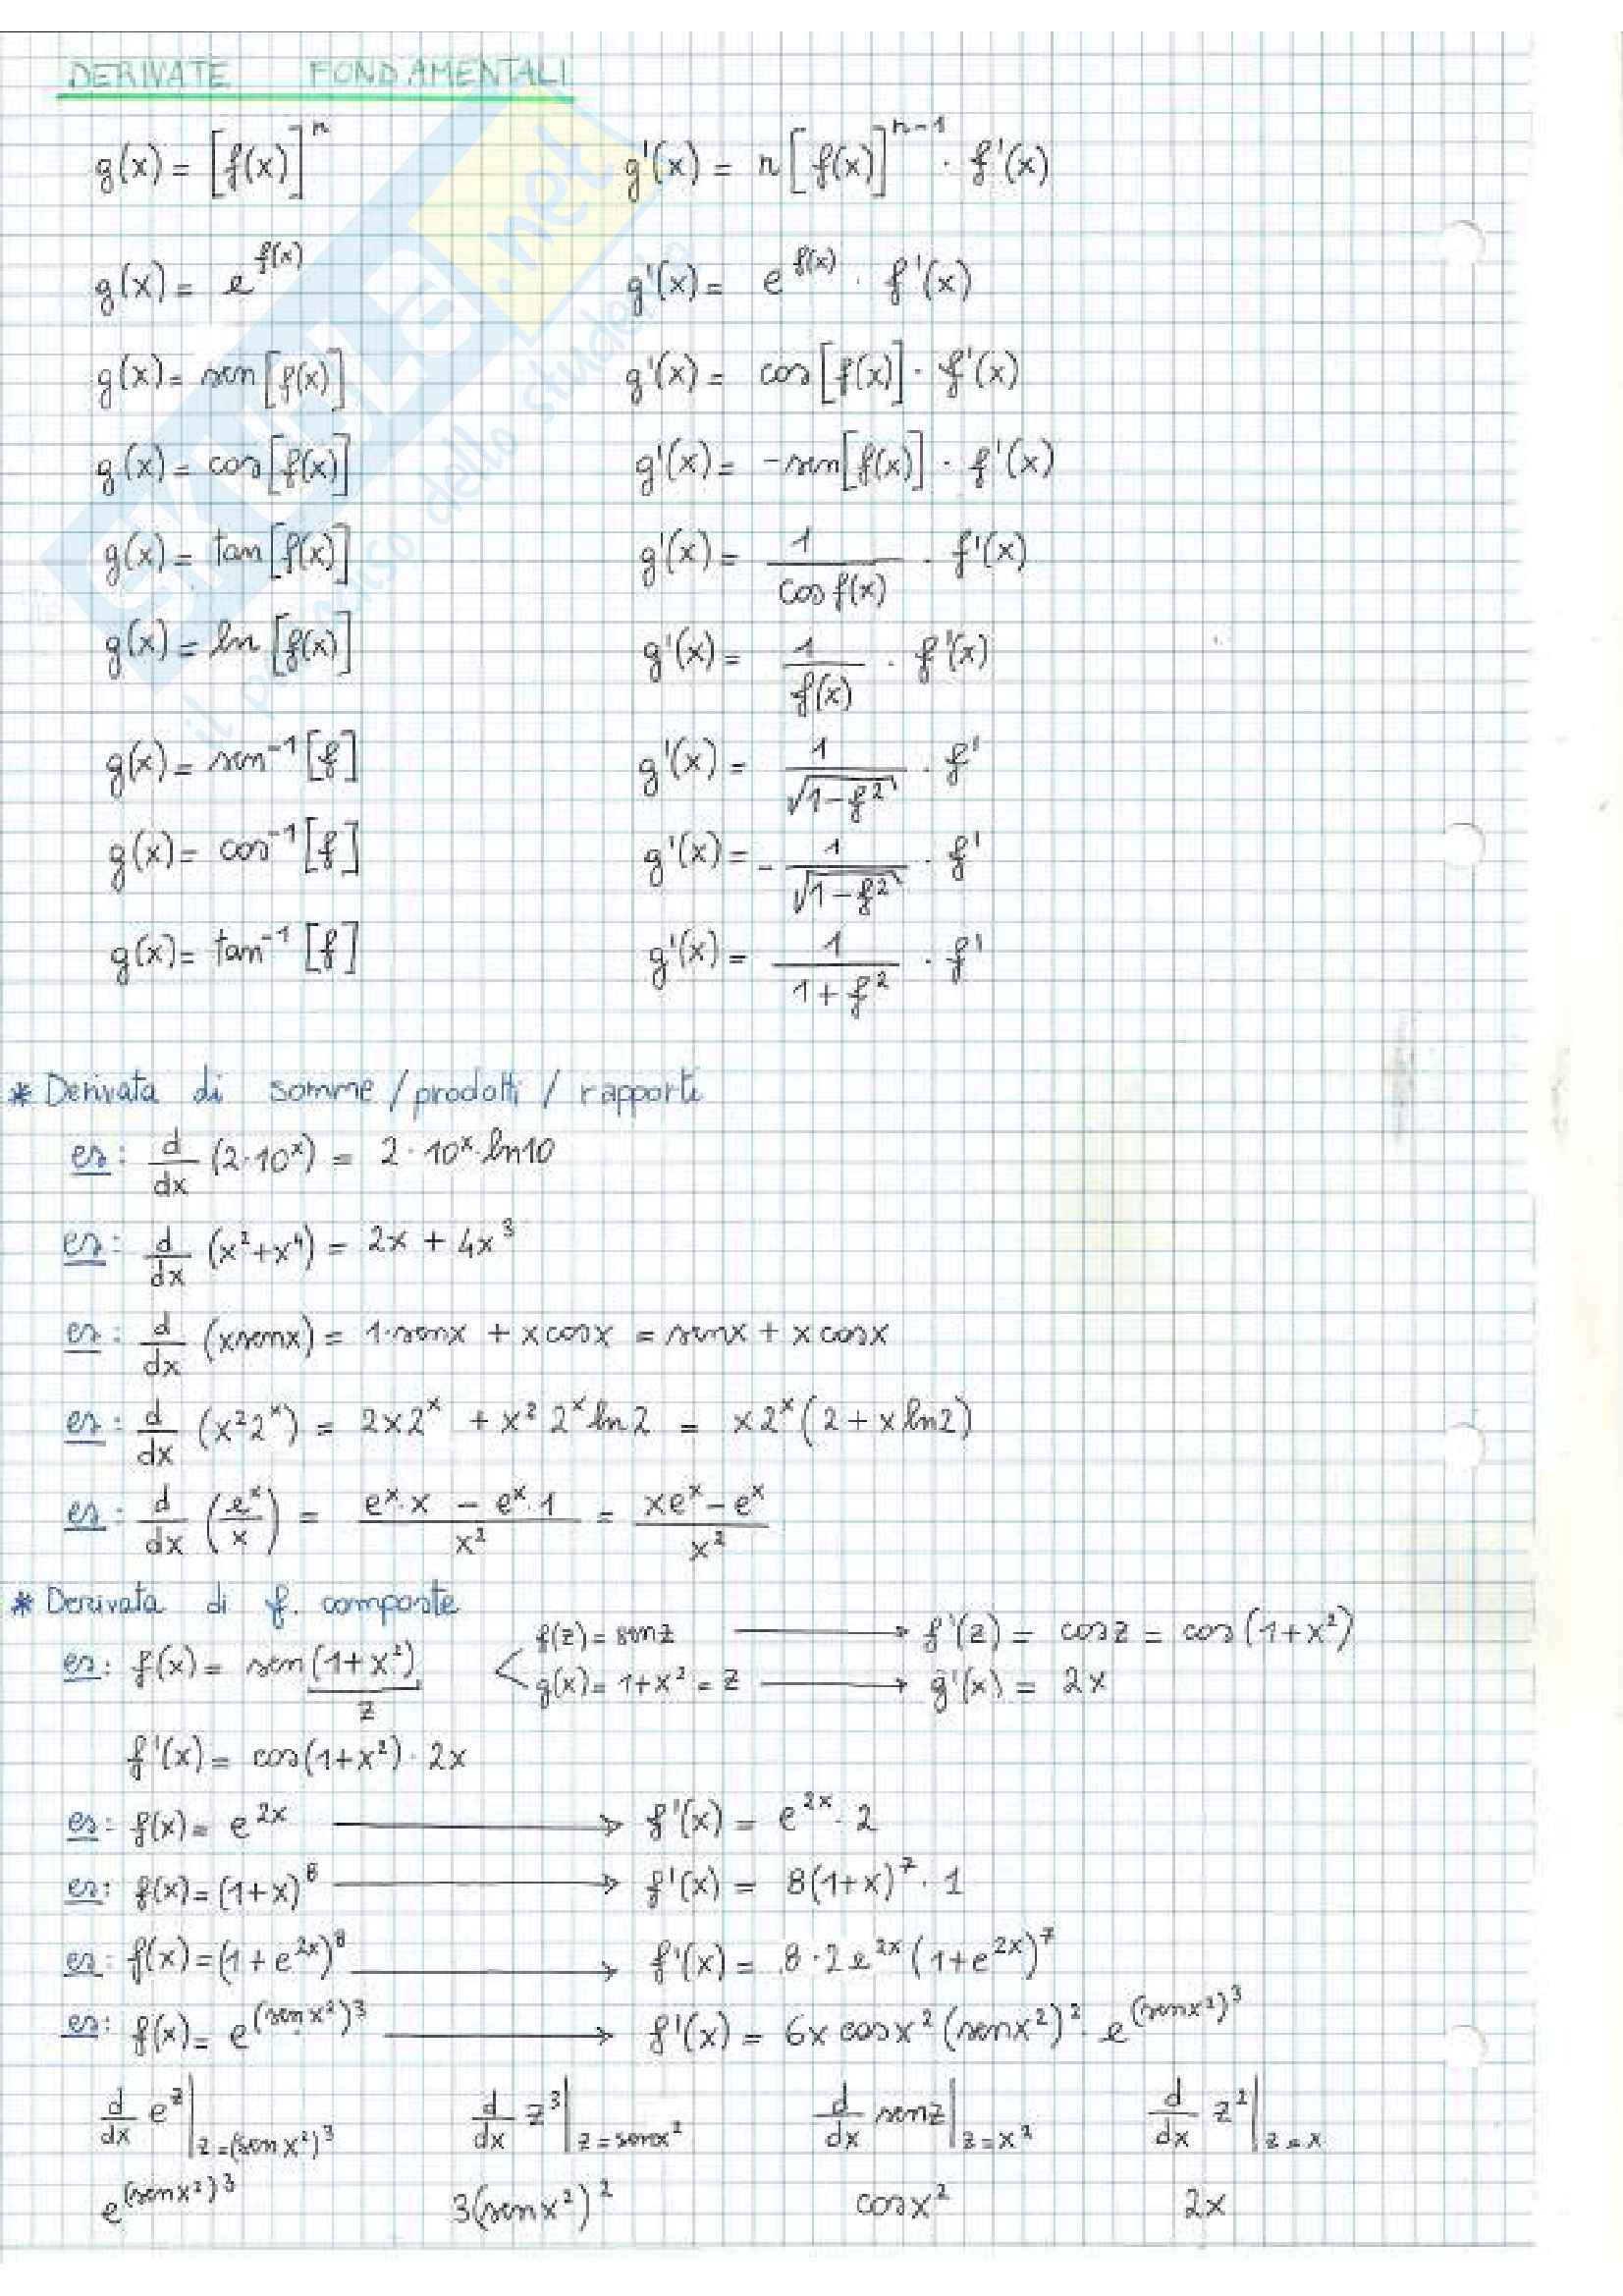 DERIVATE FONDAMENTALI
g(x) = [f(x)]^n g'(x) = n[f(x)]^(n-1) · f'(x)
g(x) = e^f(x) g'(x) = e^f(x) · f'(x)
g(x) = sen[f(x)] g'(x) = cos[f(x)] · f'(x)
g(x) = cos[f(x)] g'(x) = -sen[f(x)] · f'(x)
g(x) = tan[f(x)] g'(x) = 1/cos f(x) · f'(x)
g(x) = ln[f(x)] g'(x) = 1/f(x) · f'(x)
g(x) = sen⁻¹[f] g'(x) = 1/√(1-f²) · f'
g(x) = cos⁻¹[f] g'(x) = - 1/√(1-f²) · f'
g(x) = tan⁻¹[f] g'(x) = 1/(1+f²) · f'
SKUOLA.net
il paradiso dello studente
* Derivata di somme/prodotti/rapporti
es: d/dx (2·10^x) = 2·10^x·ln10
es: d/dx (x²+x⁴) = 2x + 4x³
es: d/dx (xsenx) = 1·senx + xcosx = senx + xcosx
es: d/dx (x²2^x) = 2x2^x + x² 2^x ln2 = x2^x(2+xln2)
es: d/dx (e^x/x) = (e^x·x - e^x·1)/x² = (xe^x - e^x)/x²
* Derivata di f. composte
es: f(x) = sen(1+x²) z < f(z) = senz → f'(z) = cosz = cos(1+x²)
g(x) = 1+x² = z → g'(x) = 2x
f'(x) = cos(1+x²)·2x
es: f(x) = e^2x → f'(x) = e^2x · 2
es: f(x) = (1+x)⁸ → f'(x) = 8(1+x)⁷·1
es: f(x) = (1+e^2x)⁸ → f'(x) = 8·2e^2x(1+e^2x)⁷
es: f(x) = e^(senx²)³ → f'(x) = 6x cosx²(senx²)²· e^(senx²)³
d/dx e^z |z=(senx²)³ d/dx z³ |z=senx² d/dx senz |z=x² d/dx z² |z=x
e^(senx²)³ 3(senx²)² cosx² 2x